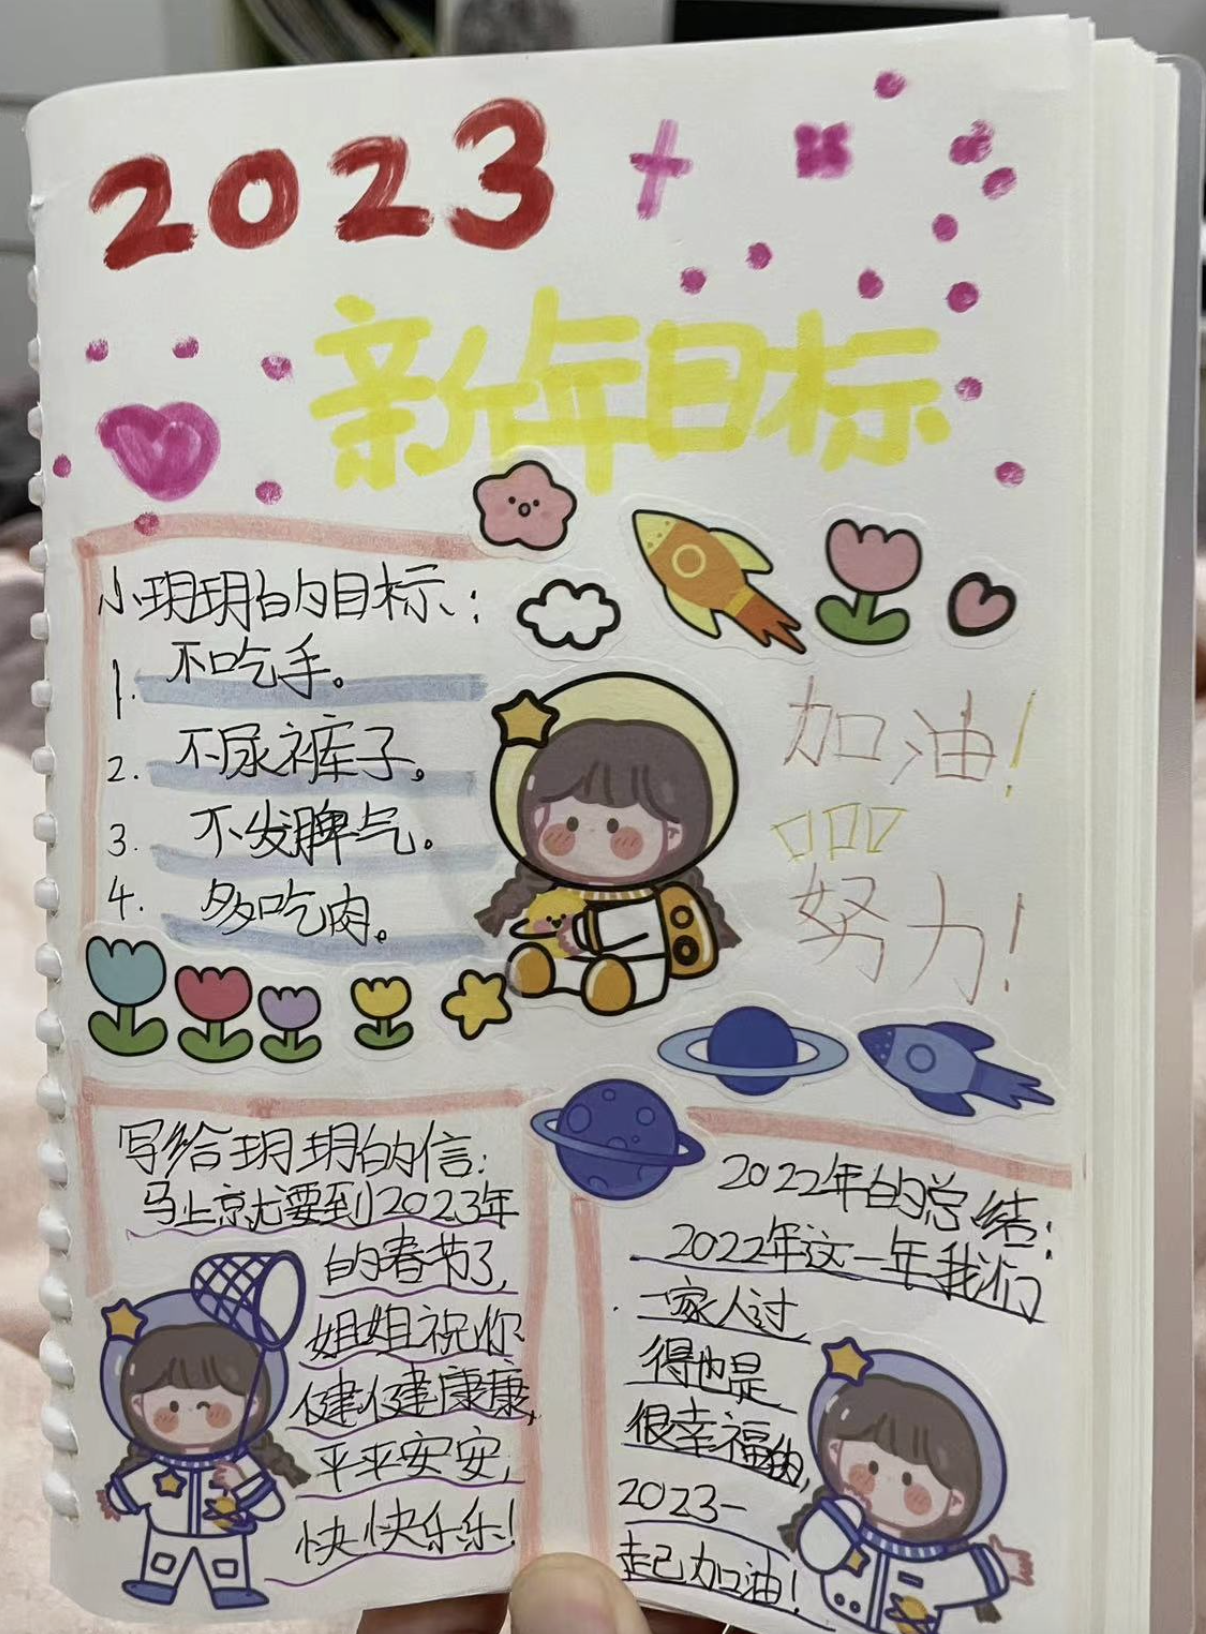 2023
新年目标
小玥玥的目标:
1. 不吃手。
2. 不尿裤子。
3. 不发脾气。
4. 多吃肉。
加油!
努力!
写给玥玥的信:
马上京尤要到2023年
的春节了,
姐姐祝你
健健康康,
平平安安,
快快乐乐!
2022年的总结:
2022年这一年我们
一家人过
得也是
很幸福的,
2023一
起加油!